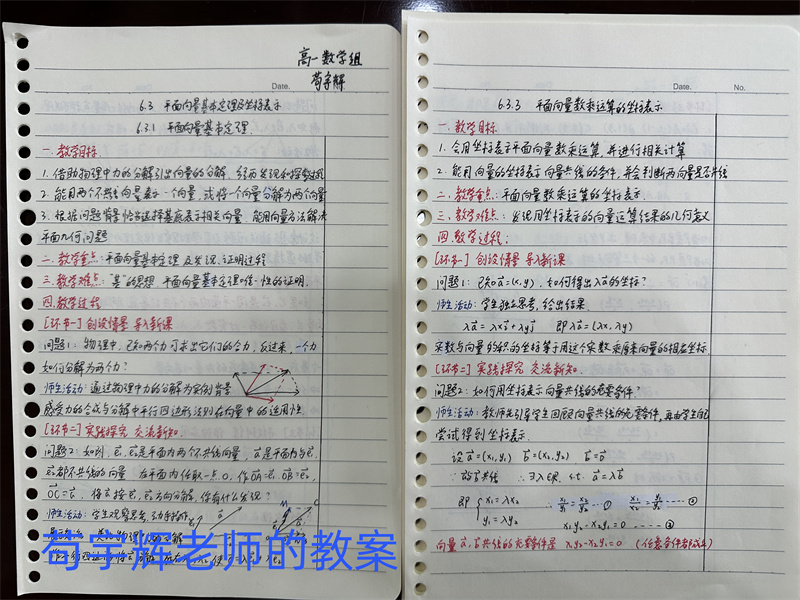 高一数学组
苟宇辉
Date.
6.3 平面向量基本定理及坐标表示
6.3.1 平面向量基本定理
一.教学目标
1.借助物理中力的分解引出向量的分解
2.能用两个不共线向量表示一个向量,或将一个向量分解为两个向量
3.根据问题背景恰当选择基底表示相关向量 能用向量方法解决
平面几何问题
二.教学重点:平面向量基本定理 及发现、证明过程
三.教学难点:"基"的思想 平面向量基本定理唯一性的证明
四.教学过程
[环节一] 创设情景 导入新课
问题1:物理中,已知两个力可求出它们的合力,反过来,一个力
如何分解为两个力?
师生活动:通过物理中力的分解为实例背景
感受力的合成与分解中平行四边形法则在向量中的运用性
[环节二] 实践探究 交流新知
问题2:如图,e₁,e₂是平面内两个不共线向量,a是平面内与e₁,
e₂都不共线的向量 在平面内任取一点O,作OA=e₁,OB=e₂,
OC=a,将a按e₁,e₂方向分解,你有什么发现?
师生活动:学生观察思考,动手操作
苟宇辉老师的教案
Date. No.
6.3.3 平面向量数乘运算的坐标表示
一.教学目标
1.会用坐标表示平面向量数乘运算,并进行相关计算
2.能用向量的坐标表示向量共线的条件,并会判断两向量是否共线
二.教学重点:平面向量数乘运算的坐标表示.
三.教学难点:发现用坐标表示的向量运算结果的几何意义
四.教学过程:
[环节一] 创设情景 导入新课
问题1:已知a=(x,y),如何得出λa的坐标?
师生活动:学生独立思考,给出结果.
λa=λxi+λyj 即λa=(λx,λy)
实数与向量的积的坐标等于用这个实数乘原来向量的相应坐标
[环节二] 实践探究 交流新知.
问题2:如何用坐标表示向量共线的充要条件?
师生活动:教师先引导学生回顾向量共线的充要条件,再由学生自己
尝试得到坐标表示.
设a=(x₁,y₁) b=(x₂,y₂)
∴∃λ∈R, s.t. a=λb
即 { x₁=λx₂ ∴ x₁/x₂=y₁/y₂ ----①
y₁=λy₂ x₁y₂-x₂y₁=0 ----②
向量a,b共线的充要条件是 x₁y₂-x₂y₁=0